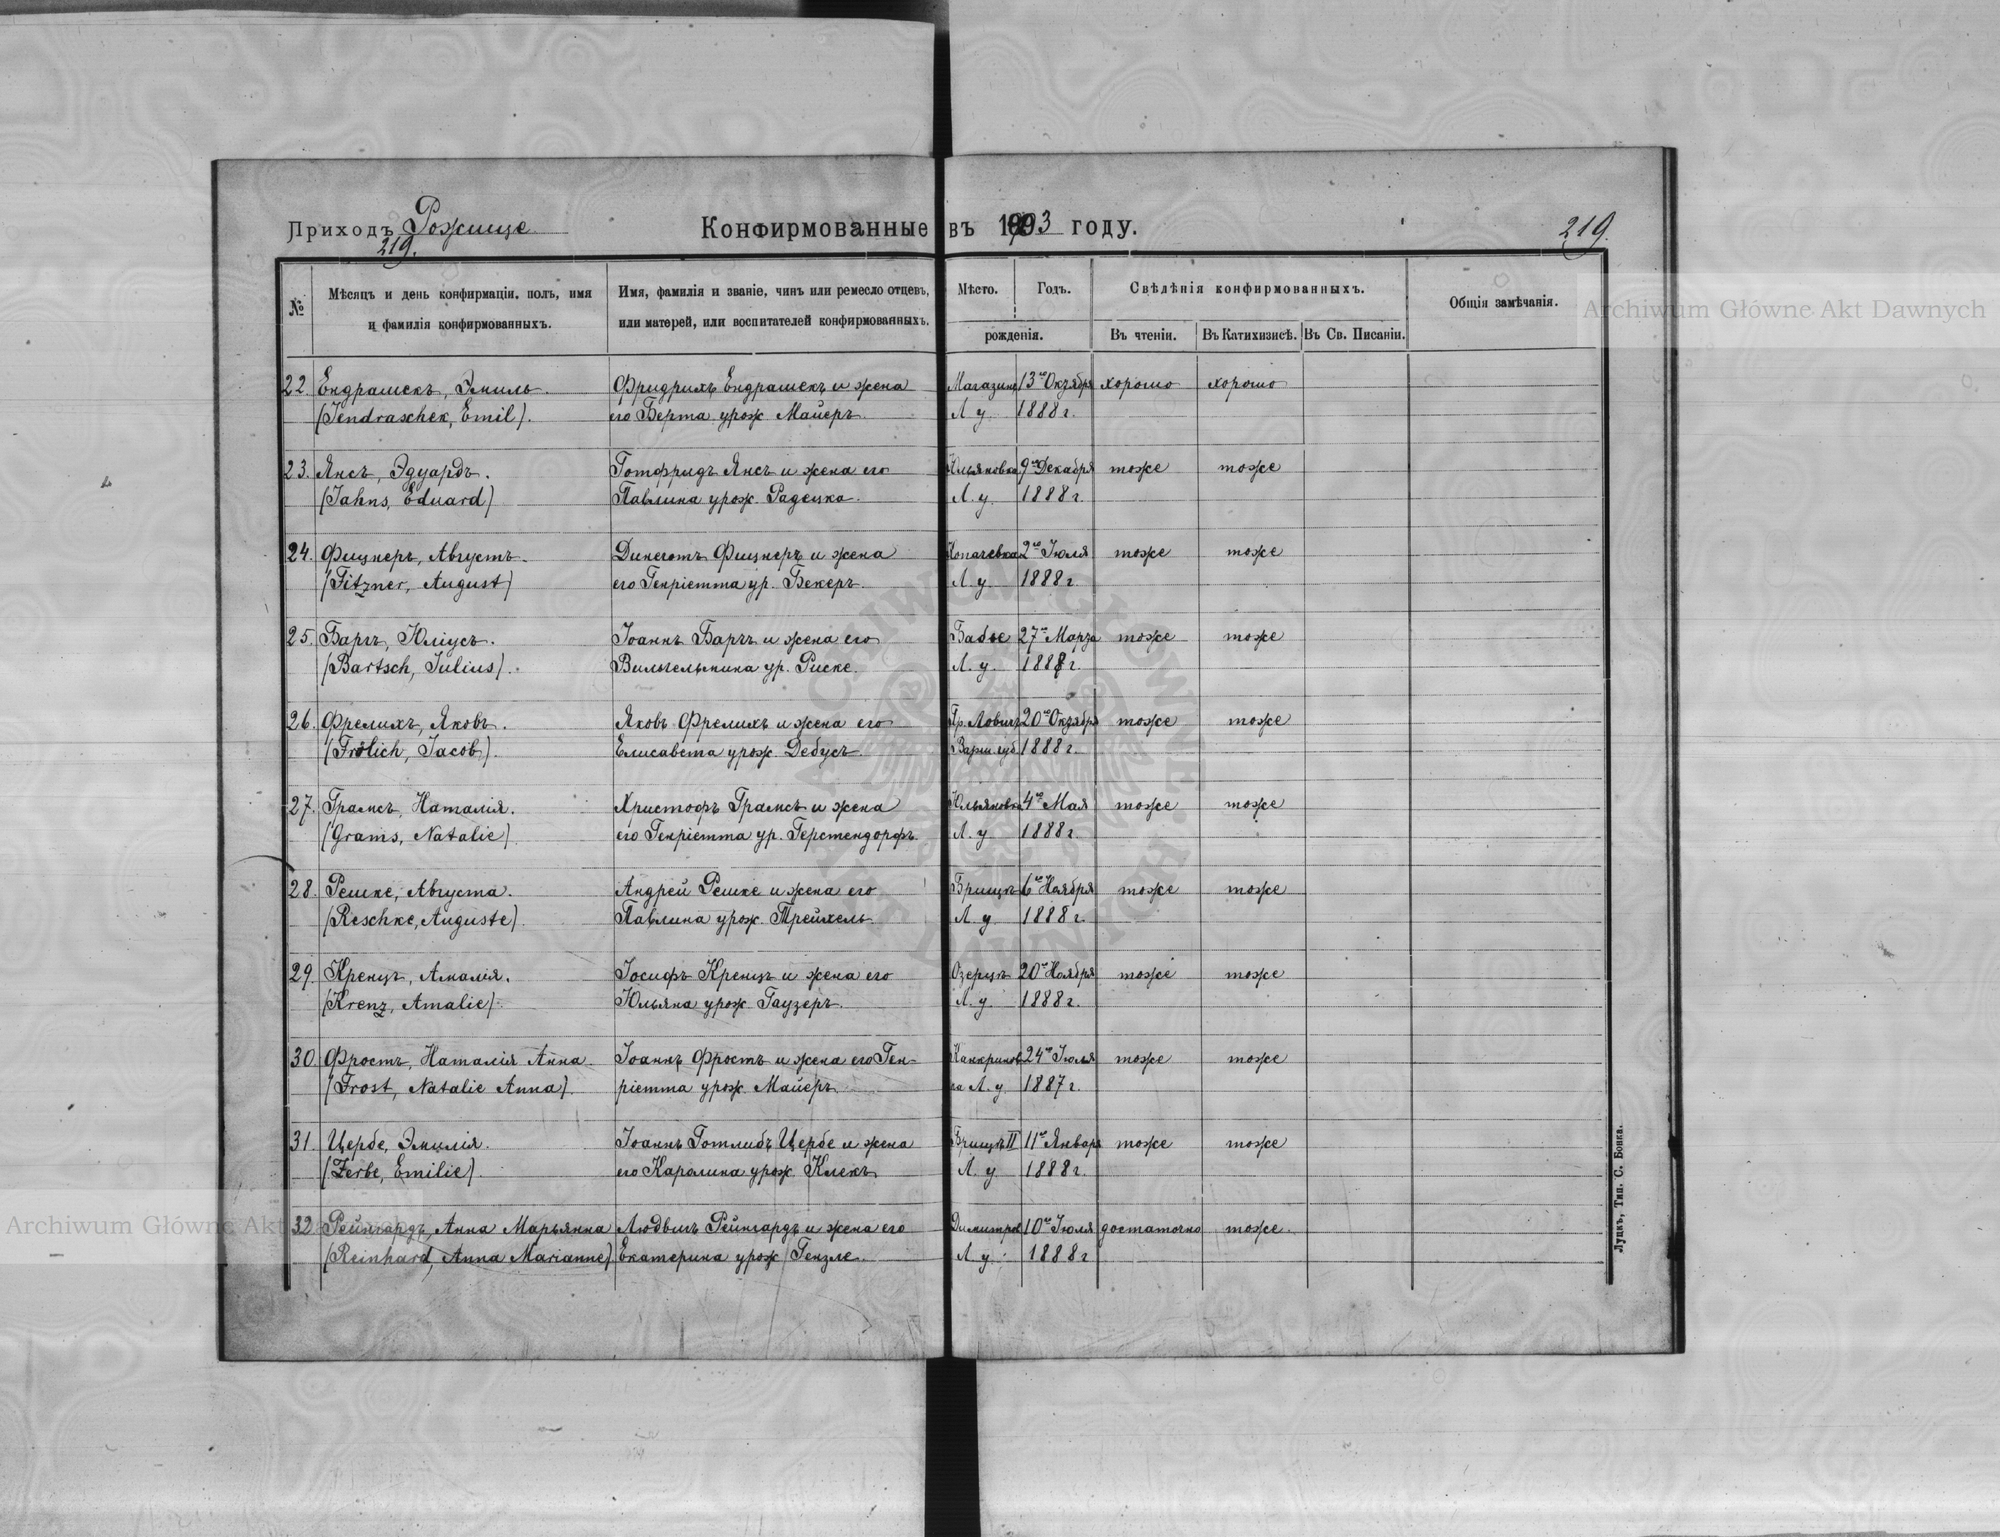 Приходъ Рожище
219.
Конфирмованные въ 1903 году.
219.
№
Мѣсяцъ и день конфирмаціи, полъ, имя и фамилія конфирмованныхъ.
Имя, фамилія и званіе, чинъ или ремесло отцевъ, или матерей, или воспитателей конфирмованныхъ.
Мѣсто.
Годъ.
рожденія.
Свѣдѣнія конфирмованныхъ.
Въ чтеніи.
Въ Катихизисѣ.
Въ Св. Писаніи.
Общія замѣчанія.
22. Ендрашекъ, Эмиль. Фридрихъ Ендрашекъ и жена 13го Октября хорошо хорошо
(Jendraschek, Emil). его Берта урож Майеръ. Л у. 1888 г.
23. Янсъ, Эдуардъ. Готфридъ Янсъ и жена его Юльяновка 9го Декабря тоже тоже
(Jahns, Eduard) Павлина урож. Радецка. Л. у. 1888 г.
24. Фицнеръ, Августъ. Динеготъ Фицнеръ и жена Копачевка 2го Іюля тоже тоже
(Fitzner, August) его Генріетта ур. Бекеръ. Л. у. 1888 г.
25. Барчъ, Юліусъ. Іоаннъ Барчъ и жена его Бабье 27го Марта тоже тоже
(Bartsch, Julius). Вильгельмина ур. Риске. Л. у. 1888 г.
26. Фрелихъ, Яковъ. Яковъ Фрелихъ и жена его Пр. Ловичъ 20го Октября тоже тоже
(Frölich, Jacob). Елисавета урож. Дебусъ. Варш. губ. 1888 г.
27. Грамсъ, Наталія. Христофъ Грамсъ и жена Юльяновка 4го Мая тоже тоже
(Grams, Natalie) его Генріетта ур. Герстендорфъ. Л. у 1888 г.
28. Решке, Августа. Андрей Решке и жена его Брищъ 6го Ноября тоже тоже
(Reschke, Auguste). Павлина урож. Трейхель. Л. у 1888 г.
29. Кренцъ, Амалія. Іосифъ Кренцъ и жена его Озерцъ 20го Ноября тоже тоже
(Krenz, Amalie). Юльяна урож. Гаузеръ. Л. у. 1888 г.
30. Фростъ, Наталія Анна. Іоаннъ Фростъ и жена его Ген- 24го Іюля тоже тоже
(Frost, Natalie Anna). ріетта урож. Майеръ. Л. у. 1887 г.
31. Цербе, Эмилія. Іоаннъ Готлибъ Цербе и жена Брищъ II 11го Января тоже тоже
(Zerbe, Emilie). его Каролина урож. Клекъ. Л. у. 1888 г.
32 Рейнгардъ, Анна Марьянна Людвигъ Рейнгардъ и жена его 10го Іюля достаточно тоже.
(Reinhard, Anna Marianne) Екатерина урож. Гензле. Л. у. 1888 г
Луцкъ, Тип. С. Бонка.
Archiwum Główne Akt Dawnych
Archiwum Główne Akt Dawnych
ARCHIWUM GŁÓWNE AKT DAWNYCH